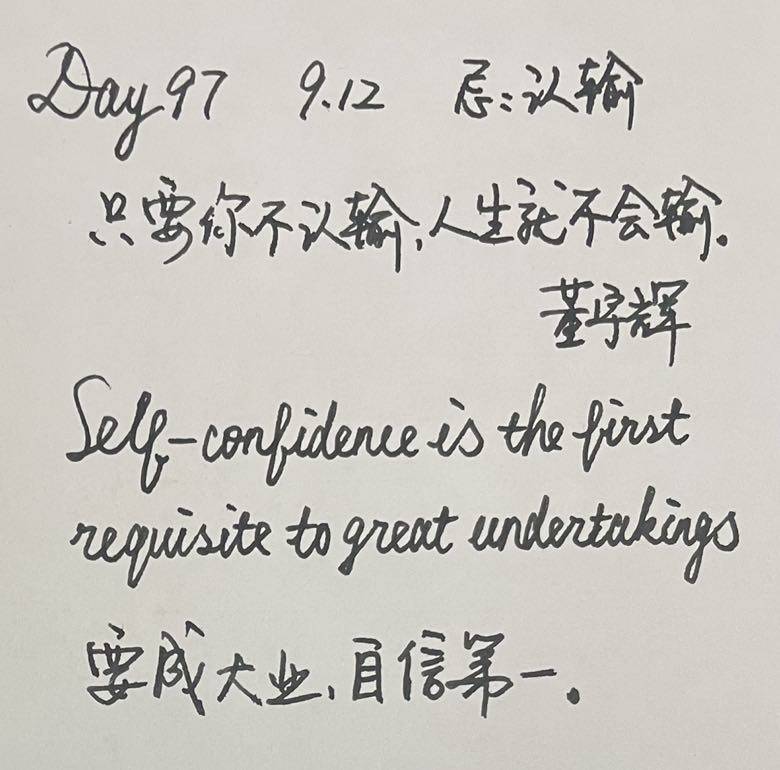 Day 97 9.12 忌:认输
只要你不认输,人生就不会输.
董宇辉
Self-confidence is the first
requisite to great undertakings
要成大业,自信第一.